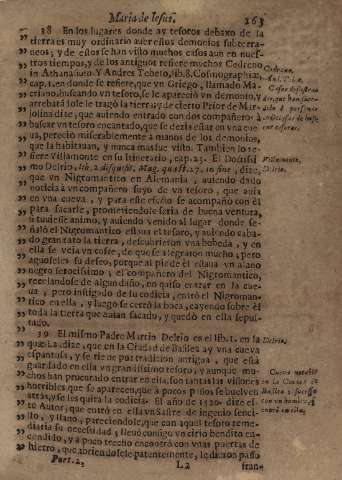 Maria de Iesus. 263
38 En los lugares donde ay tesoros debaxo de la
tierra es muy ordinario auer estos demonios subterra-
neos; y de esto se han visto muchos casos aun en nues-
tros tiempos, y de los antiguos refiere muchos Cedreno
in Athanasiuto. Y Andres Tebeto, lib. 8. Cosmographiæ,
cap. 1. en donde se refiere, que vn Griego, llamado Ma-
criano, buscando vn tesoro, se le apareciò vn demonio,
arrebatòlo, le tragò la tierra; y de cierto Prior de Mar-
jolina dize, que auiendo entrado con dos compañeros à
buscar vn tesoro encantado, que se dezia estar en vna cue-
ua, pereciò miserablemente à manos de los demonios,
que la habitauan, y nunca mas fue visto. Tambien lo re-
fiere Villamonte en su Itinerario, cap. 23. El Doctissi-
mo Delrio, lib. 2. disquisit. Mag. quæst. 27. in fine, dize,
que vn Nigromantico en Alemania, auiendo dado
noticia à vn compañero suyo de vn tesoro, que auia
en vna cueua, y para este efecto se acompañò con èl
para sacarle, prometiendole seria de buena ventura,
si tuuiesse animo, y auiendo venido al lugar donde se-
ñalò el Nigromantico estaua el tesoro, y auiendo caba-
do gran rato la tierra, descubrieron vna bobeda, y en
ella se veia vn cofre, de que se alegraron mucho; pero
aguòseles su deseo, porque al pie de èl estaua vn alano
negro ferocissimo; el compañero del Nigromantico,
rezelandose de algun daño, no quiso entrar en la cue-
ua; pero instigado de su codicia, entrò el Nigroman-
tico en ella, y luego se cerrò la boca, cayendo sobre èl
toda la tierra que auian sacado, y quedò en ella sepul-
tado.
39 El mismo Padre Martin Delrio en el lib. 1. en la
dize, que en la Ciudad de Basilea ay vna cueua
espantosa, y se tiene por tradicion antigua, que està
guardado en ella vn grandissimo tesoro, y aunque mu-
chos han procurado entrar en ella, son tantas las visiones
horribles que se aparecen, que à pocos passos se bueluen
atràs, y se les quita la codicia. El año de 1520. dize es-
te Autor, que entrò en ella vn Sastre de ingenio senci-
llo, y llano, pareciendole, que con aquel tesoro reme-
diaria su necessidad, lleuò consigo vn cirio bendito en-
cendido, y à poco trecho encontrò con vnas puertas de
hierro, que abriendosele patentemente, le dieron passo
Part. 2. L2 fran-
Cedreno.
And. Tebet.
Casos
que han suce-
dido
en ocasion de bus-
car tesoros.
Villamonte.
Delrio.
Delrio.
Cueua notable
en la Ciudad de
Basilea; y sucesso
con vn hombre, q
entrò en ella.